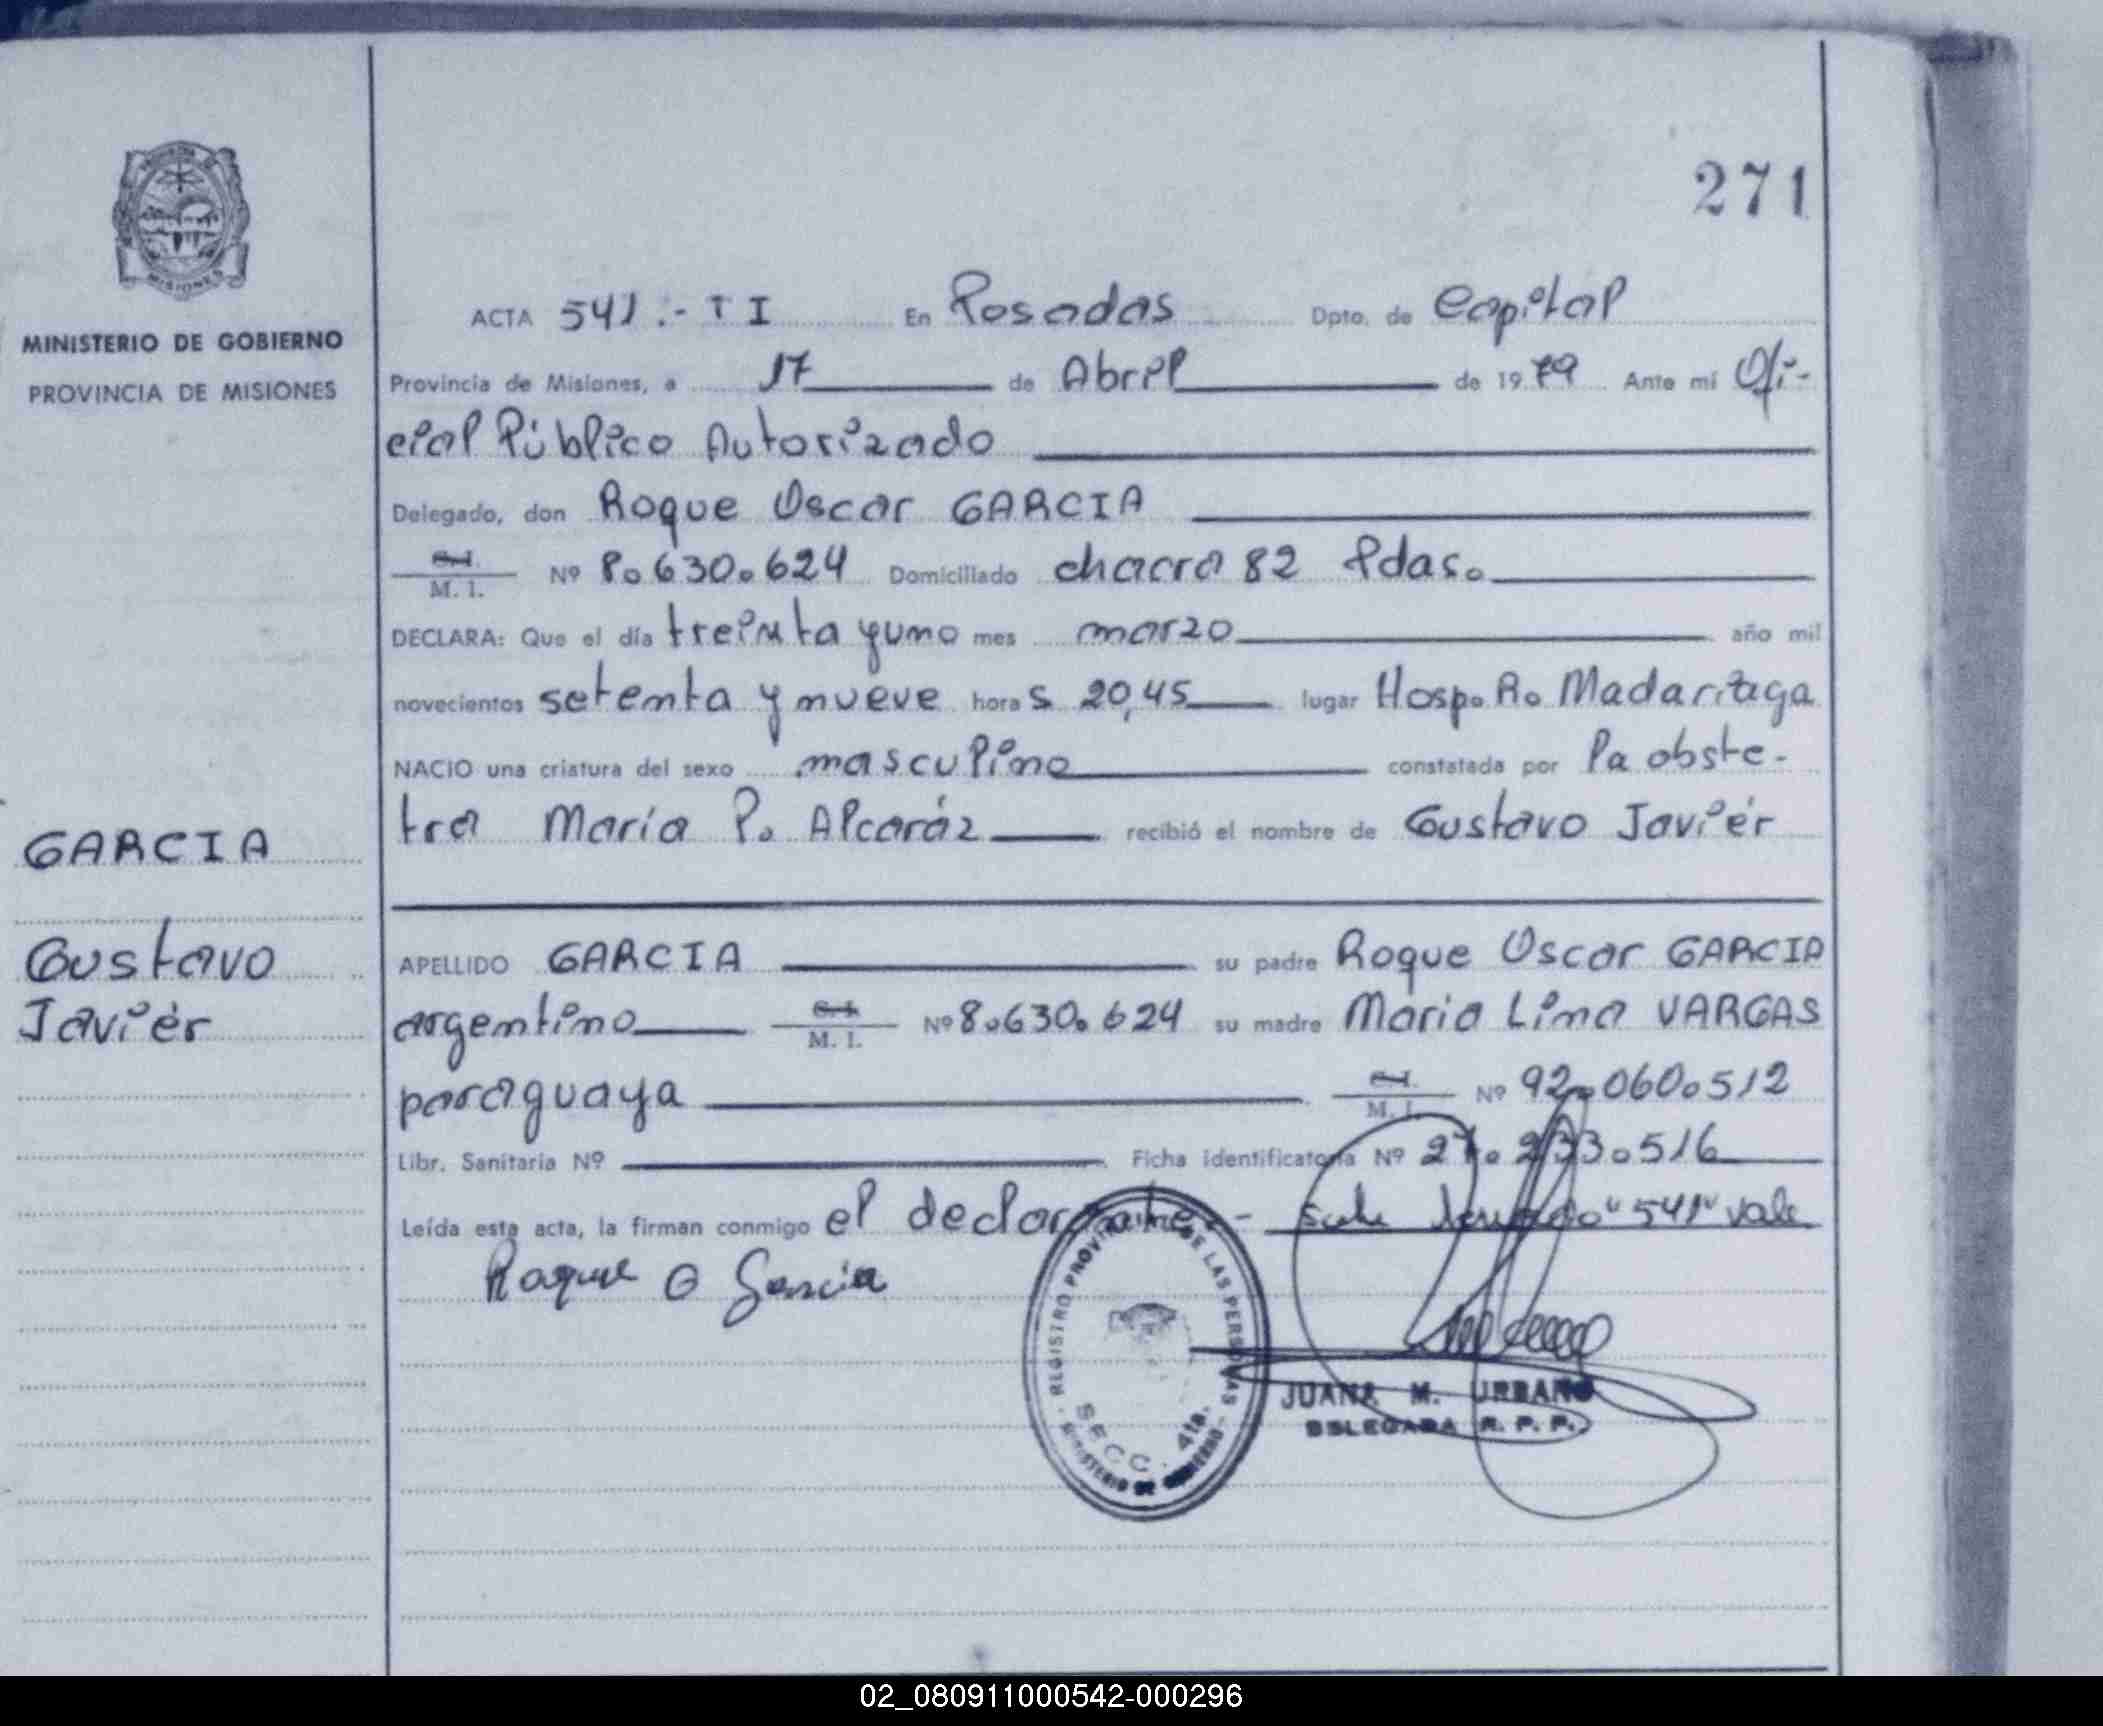 271
MISIONES
MINISTERIO DE GOBIERNO
PROVINCIA DE MISIONES
ACTA 541.- T I En Posadas Dpto. de Capital
Provincia de Misiones, a 17 de Abril de 1979 Ante mí Ofi-
cial Público Autorizado
Delegado, don Roque Oscar GARCIA
M. I. Nº 8.630.624 Domiciliado chacra 82 Pdas.
DECLARA: Que el día treinta y uno mes marzo año mil
novecientos setenta y nueve horas 20,45 lugar Hosp. R. Madariaga
NACIO una criatura del sexo masculino constatada por la obste-
tra María P. Alcaráz recibió el nombre de Gustavo Javiér
GARCIA
Gustavo
Javiér
APELLIDO GARCIA su padre Roque Oscar GARCIA
argentino M. I. Nº 8.630.624 su madre Maria Lina VARGAS
paraguaya M. I. Nº 92.060.512
Libr. Sanitaria Nº Ficha identificatoria Nº 27.233.516
Leída esta acta, la firman conmigo el declarante.- "541" vale
Roque O Garcia
REGISTRO PROVINCIAL DE LAS PERSONAS
SECC. 4ta.
MINISTERIO DE GOBIERNO
JUANA M. URBANO
DELEGADA R. P. P.
02_080911000542-000296